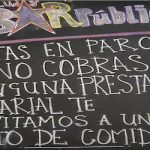 BAR Publi
TAS EN PARO
NO COBRAS
NGUNA PRESTA
ARIAL TE
VITAMOS A UN
TO DE COMID